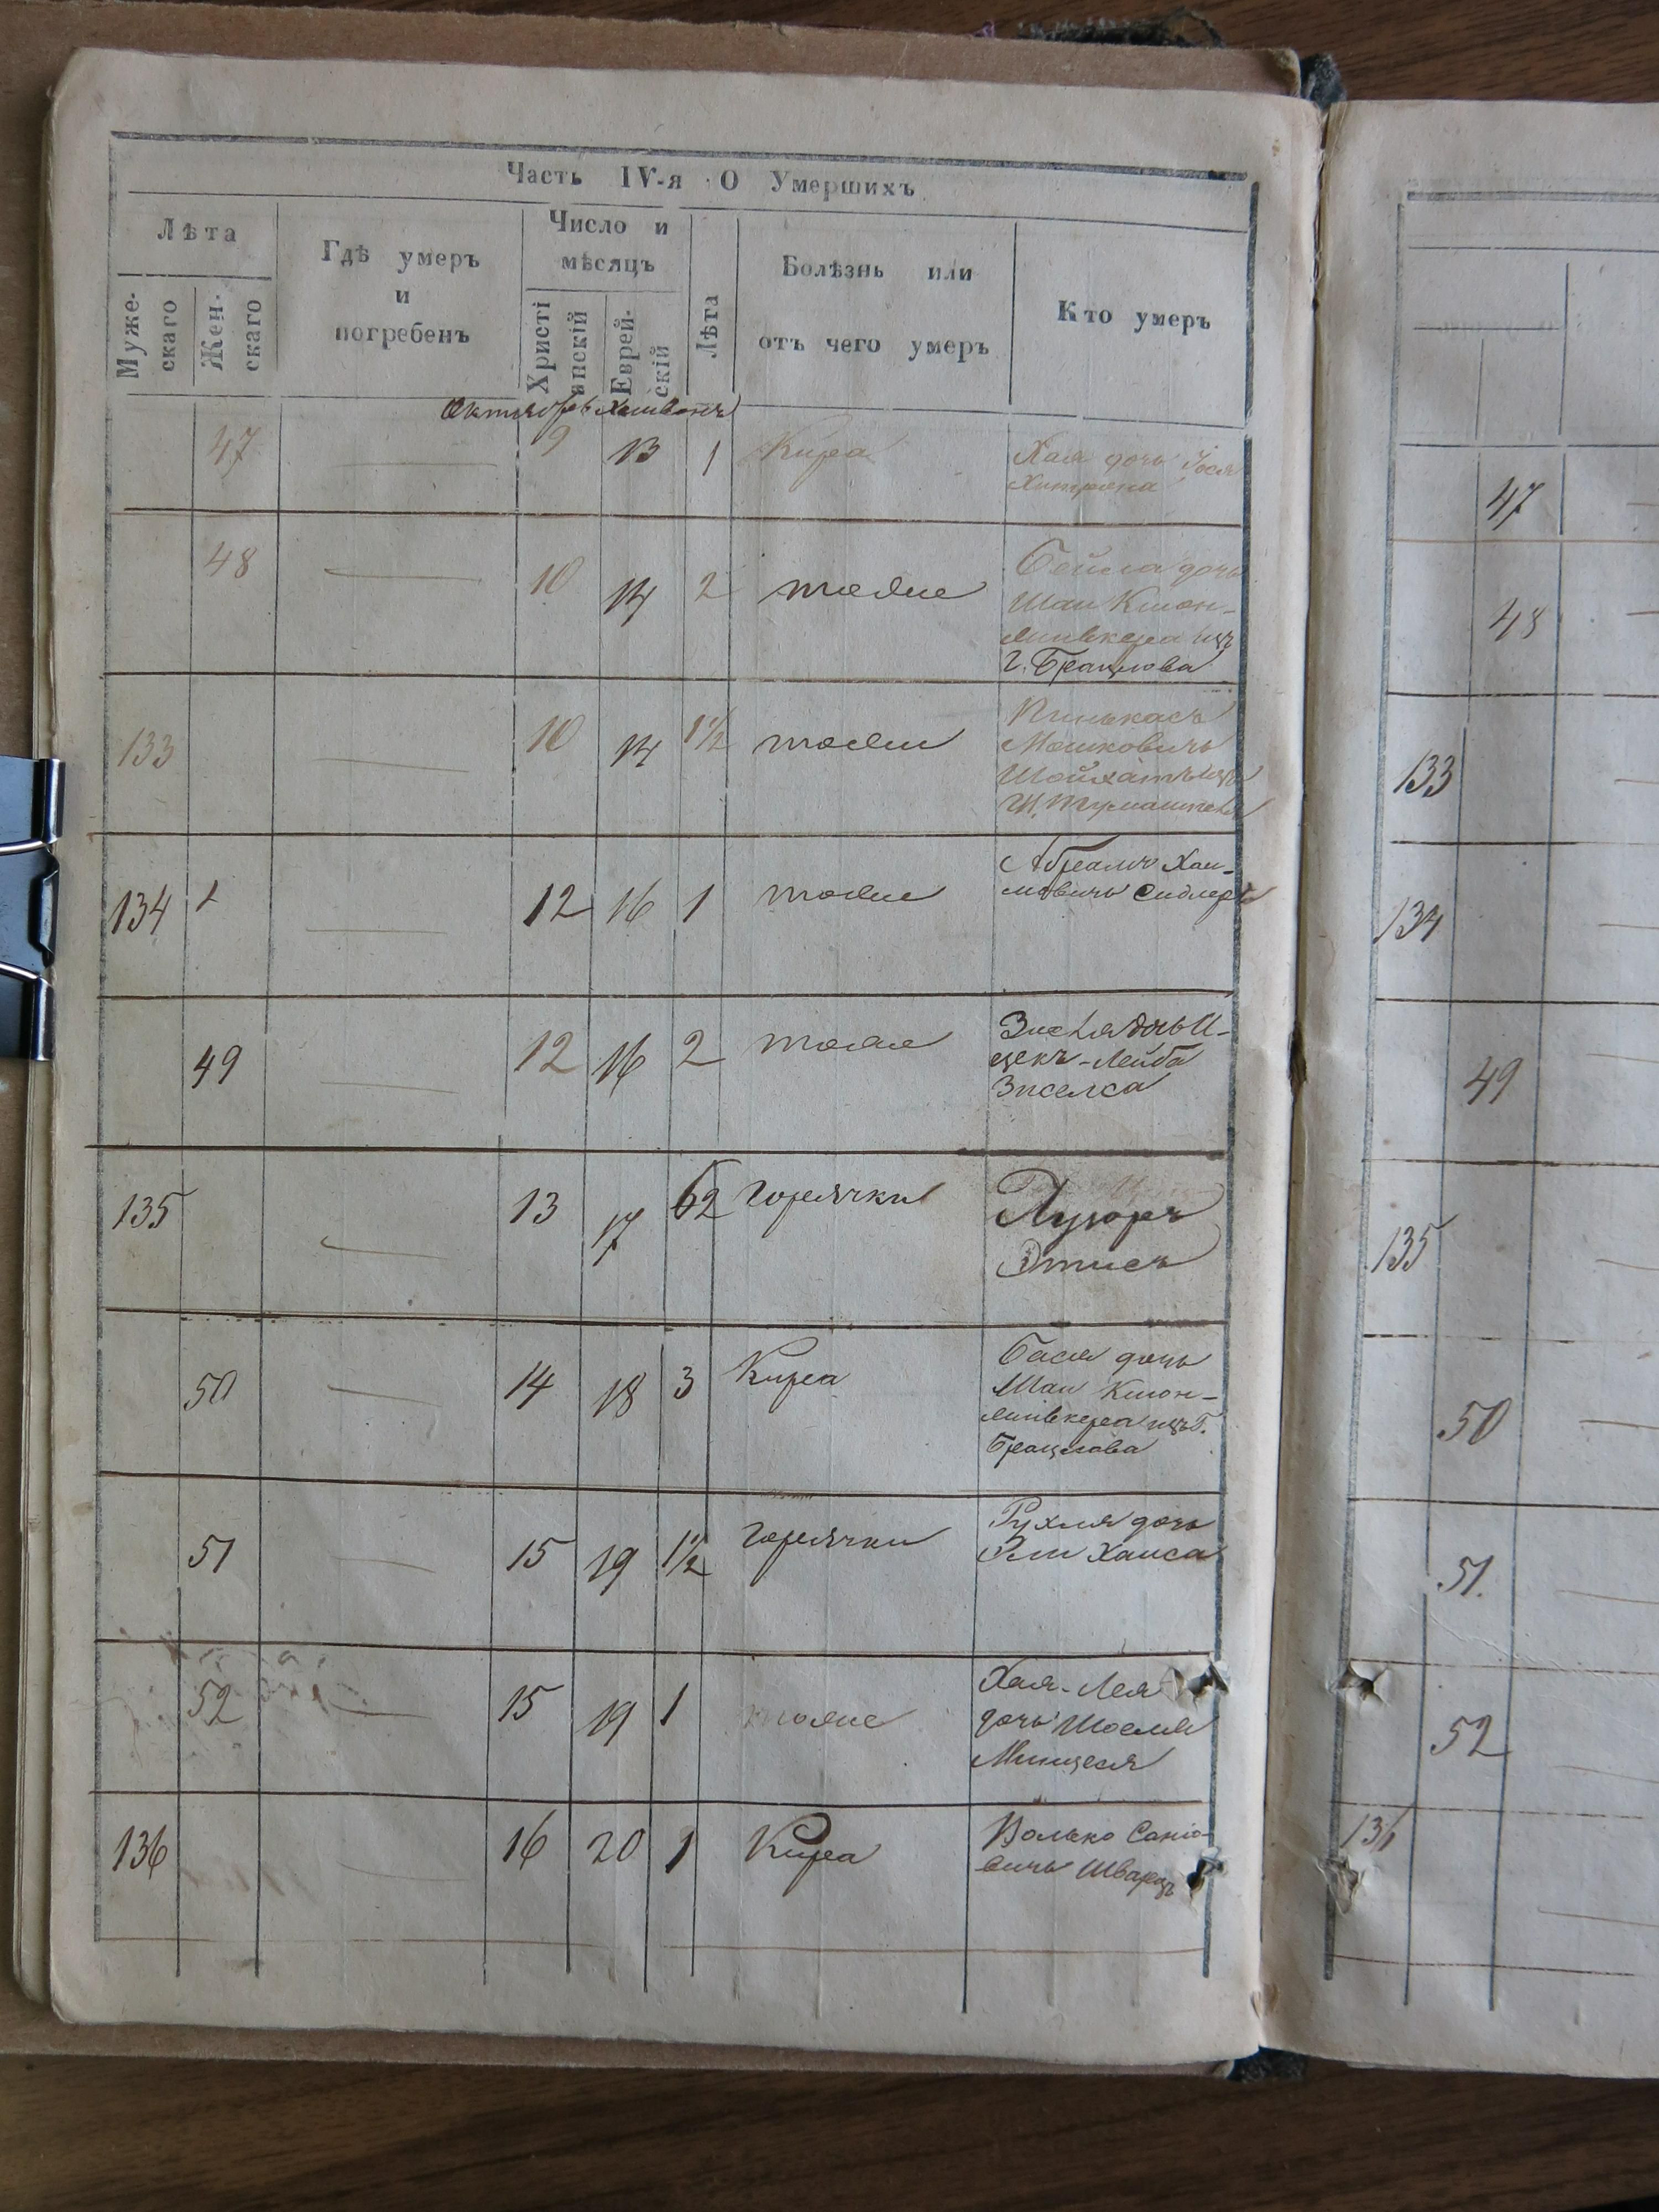 Часть IV-я О Умершихъ
Лѣта
Муже-
скаго
Жен-
скаго
Гдѣ умеръ
и
погребенъ
Число и
мѣсяцъ
Христі
анскій
Еврей-
скій
Лѣта
Болѣзнь или
отъ чего умеръ
Кто умеръ
Октября Хешванъ
47 9 13 1 Кира Хая дочь Іося
48 10 14 2 тоже Бейла дочь
Шаи Клон-
изъ
г. Брацлова
133 10 14 1½ тоже Пинькасъ
Мошковичь
134 1 12 16 1 тоже Абрамъ Хаи-
мовичь Сидлеръ
49 12 16 2 тоже дочь И-
цекъ-Лейба
Зиселса
135 13 17 62 горячки Лузоръ
50 14 18 3 Кира Бася дочь
Шаи Клон-
изъ г.
Брацлова
51 15 19 1½ горячки Рухля дочь
Эли Хаиса
52 15 19 1 тоже Хая-Лея
дочь Шоеля
136 16 20 1 Кира Волько
вичь Шварцъ
47
48
133
134
49
135
50
51.
52
136